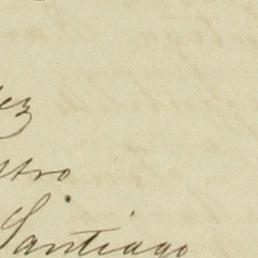 ez
stro
Santiago